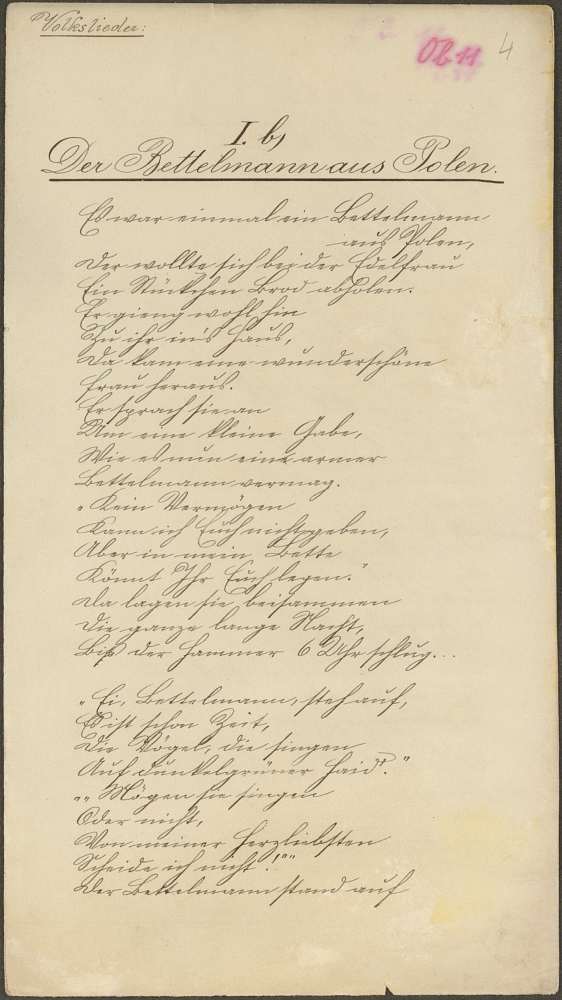 Volkslieder:
Ob 11
4
I. b,
Der Bettelmann aus Polen.
Es war einmal ein Bettelmann
aus Polen,
Der wollte sich bei der Edelfrau
Ein Stückchen Brod abholen.
Er gieng wohl hin
Zu ihr in's Haus,
Da kam eine wunderschöne
Frau heraus.
Er sprach sie an
Um eine kleine Gabe,
Wie es nun eine armer
Bettelmann vermag.
„Kein Vermögen
Kann ich Euch nicht geben,
Aber in mein Bette
Könnt Ihr Euch legen."
Da lagen sie beisammen
Die ganze lange Nacht,
Biß der Hammer 6 Uhr schlug...
„Ei, Bettelmann, steh auf,
Es ist schon Zeit,
Die Vögel, die singen
Auf dunkelgrüner Haid'."
„„Mögen sie singen
Oder nicht,
Von meiner Herzliebsten
Scheide ich nicht!""
Der Bettelmann stand auf